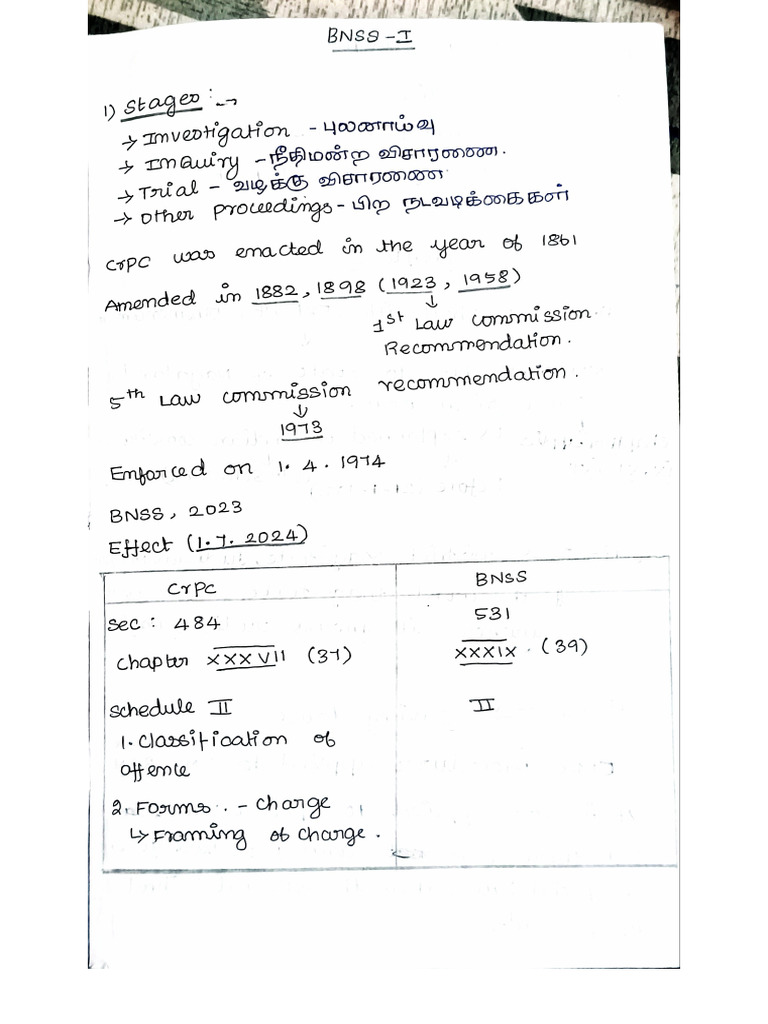 BNSS - I
1) Stages :- →
→ Investigation - புலனாய்வு
→ Inquiry - நீதிமன்ற விசாரணை.
→ Trial - வழக்கு விசாரணை
→ Other proceedings - பிற நடவடிக்கைகள்
CrPC was enacted in the year of 1861
Amended in 1882, 1898 (1923, 1958)
↓
1st Law commission
Recommendation.
5th Law commission recommendation.
↓
1973
Enforced on 1.4.1974
BNSS, 2023
Effect (1.7.2024)
CrPC BNSS
Sec: 484 531
Chapter XXXVII (37) XXXIX. (39)
Schedule II II
1. Classification of
offence
2. Forms. - Charge
↳ Framing of charge.